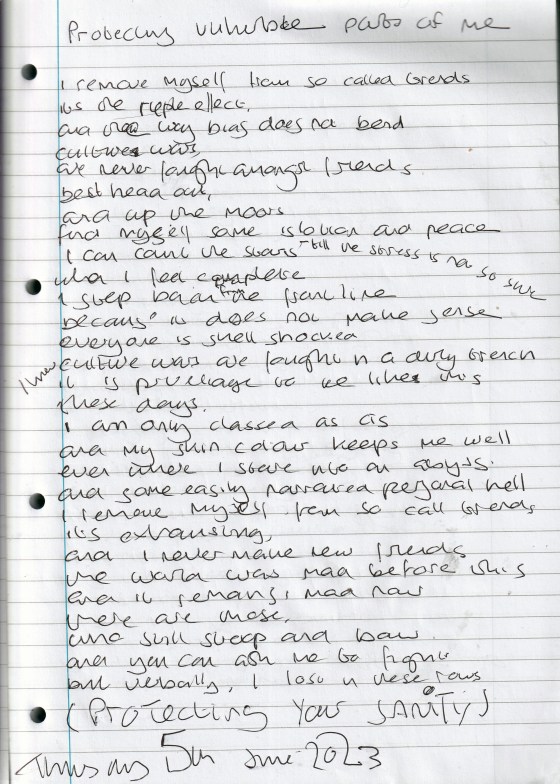 Protecting vulnerable parts of me
I remove myself from so called trends
its the ripple effect,
and the way bias does not bend
culture wars
are never fought amongst friends.
best head out,
and up the moors
find myself some isolation and peace
I can count the stars - till the stress is not so sure
when I feel complete
I step back from the front line
because it does not make sense.
everyone is shell shocked
culture wars are fought in a dirty trench
I know it is privilege to be like this
these days.
I am only classed as cis
and my skin colour keeps me well
even where I stare into an abyss.
and some easily narrated personal hell
I remove myself from so call trends
it's exhausting,
and I never make new friends
the world was mad before this
and it remains mad now
there are those,
who still stoop and bow.
and you can ask me to fight
but verbally, I lose in these rows
(Protecting Your SANITY)
Thursday 5th June 2023